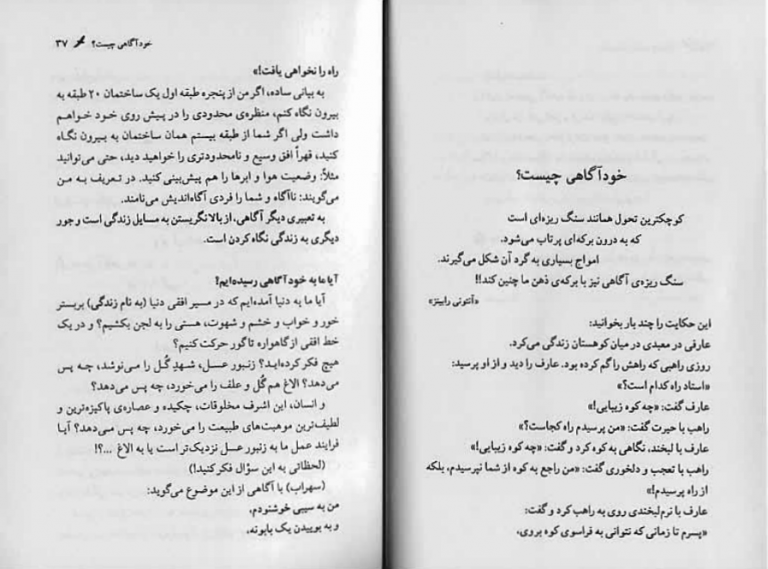 خودآگاهی چیست؟
کوچکترین تحول همانند سنگ ریزه‌ای است
که به درون برکه‌ای پرتاب می‌شود.
امواج بسیاری به گرد آن شکل می‌گیرند.
سنگ ریزه‌ی آگاهی نیز با برکه‌ی ذهن ما چنین کند!!
«آنتونی رابینز»
این حکایت را چند بار بخوانید:
عارفی در معبدی در میان کوهستان زندگی می‌کرد.
روزی راهبی که راهش را گم کرده بود. عارف را دید و از او پرسید:
«استاد راه کدام است؟»
عارف گفت: «چه کوه زیبایی!»
راهب با حیرت گفت: «من پرسیدم راه کجاست؟»
عارف با لبخند، نگاهی به کوه کرد و گفت: «چه کوه زیبایی!»
راهب با تعجب و دلخوری گفت: «من راجع به کوه از شما نپرسیدم، بلکه
از راه پرسیدم!»
عارف با نرم‌لبخندی روی به راهب کرد و گفت:
«پسرم تا زمانی که نتوانی به فراسوی کوه بروی،
خودآگاهی چیست؟ ۳۷
راه را نخواهی یافت!»
به بیانی ساده، اگر من از پنجره طبقه اول یک ساختمان ۲۰ طبقه به
بیرون نگاه کنم، منظره‌ی محدودی را در پیش روی خود خواهم
داشت ولی اگر شما از طبقه بیستم همان ساختمان به بیرون نگاه
کنید، قهراً افق وسیع و نامحدودتری را خواهید دید، حتی می‌توانید
مثلاً: وضعیت هوا و ابرها را هم پیش‌بینی کنید. در تعریف به من
می‌گویند: ناآگاه و شما را فردی آگاه‌اندیش می‌نامند.
به تعبیری دیگر آگاهی، از بالا نگریستن به مسایل زندگی است و جور
دیگری به زندگی نگاه کردن است.
آیا ما به خودآگاهی رسیده‌ایم؟
آیا ما به دنیا آمده‌ایم که در مسیر افقی دنیا (به نام زندگی) بر بستر
خور و خواب و خشم و شهوت، هستی را به لجن بکشیم؟ و در یک
خط افقی از گاهواره تا گور حرکت کنیم؟
هیچ فکر کرده‌اید؟ زنبور عسل، شهدِ گُل را می‌نوشد، چه پس
می‌دهد؟ الاغ هم گُل و علف را می‌خورد، چه پس می‌دهد؟
و انسان، این اشرف مخلوقات، چکیده و عصاره‌ی پاکیزه‌ترین و
لطیف‌ترین موهبت‌های طبیعت را می‌خورد، چه پس می‌دهد؟ آیا
فرایند عمل ما به زنبور عسل نزدیک‌تر است یا به الاغ ...؟!
(لحظاتی به این سؤال فکر کنید!)
(سهراب) با آگاهی از این موضوع می‌گوید:
من به سیبی خوشنودم،
و به بوییدن یک بابونه.